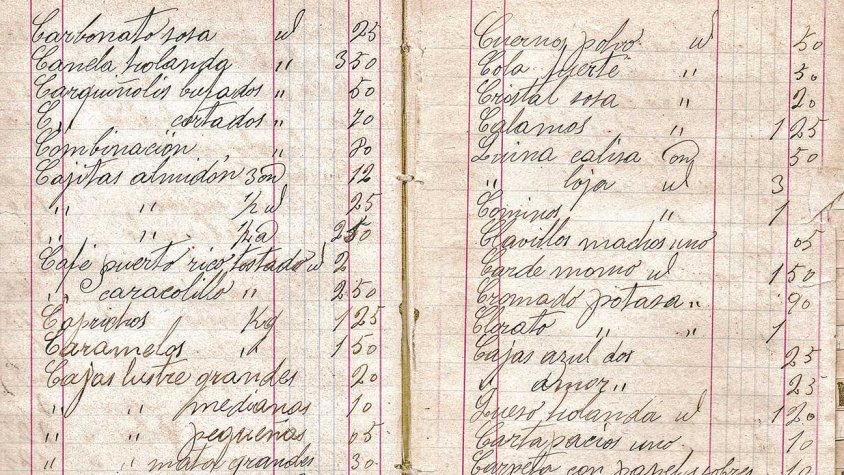 Carbonato sosa " 25
Canela holanda " 3 50
Carquiñolis bufados " 50
C, " cortados " 70
Combinación " 80
Cajitas almidón 3 on 12
" " ½ 25
" " 50
Café puerto rico tostado 2
" caracolillo " 2 50
Caprichos Kg 1 25
Caramelos 1 50
Cajas lustre grandes 20
" " medianas 10
" " pequeñas 05
" " mata grandes 30
Cuerno polvo 50
Cola fuerte " 50
Cristal sosa " 20
Calamos " 1 25
calisa on 50
" loja 3
Cominos " 1
Clavillos machos uno 05
Cardemomo 1 50
Cromado potasa " 90
Clorato " " 1
Cajas azul dos 25
" amor " 25
Queso holanda 1 20
Cartapacios uno 10
Carpeta con papel sobres 10